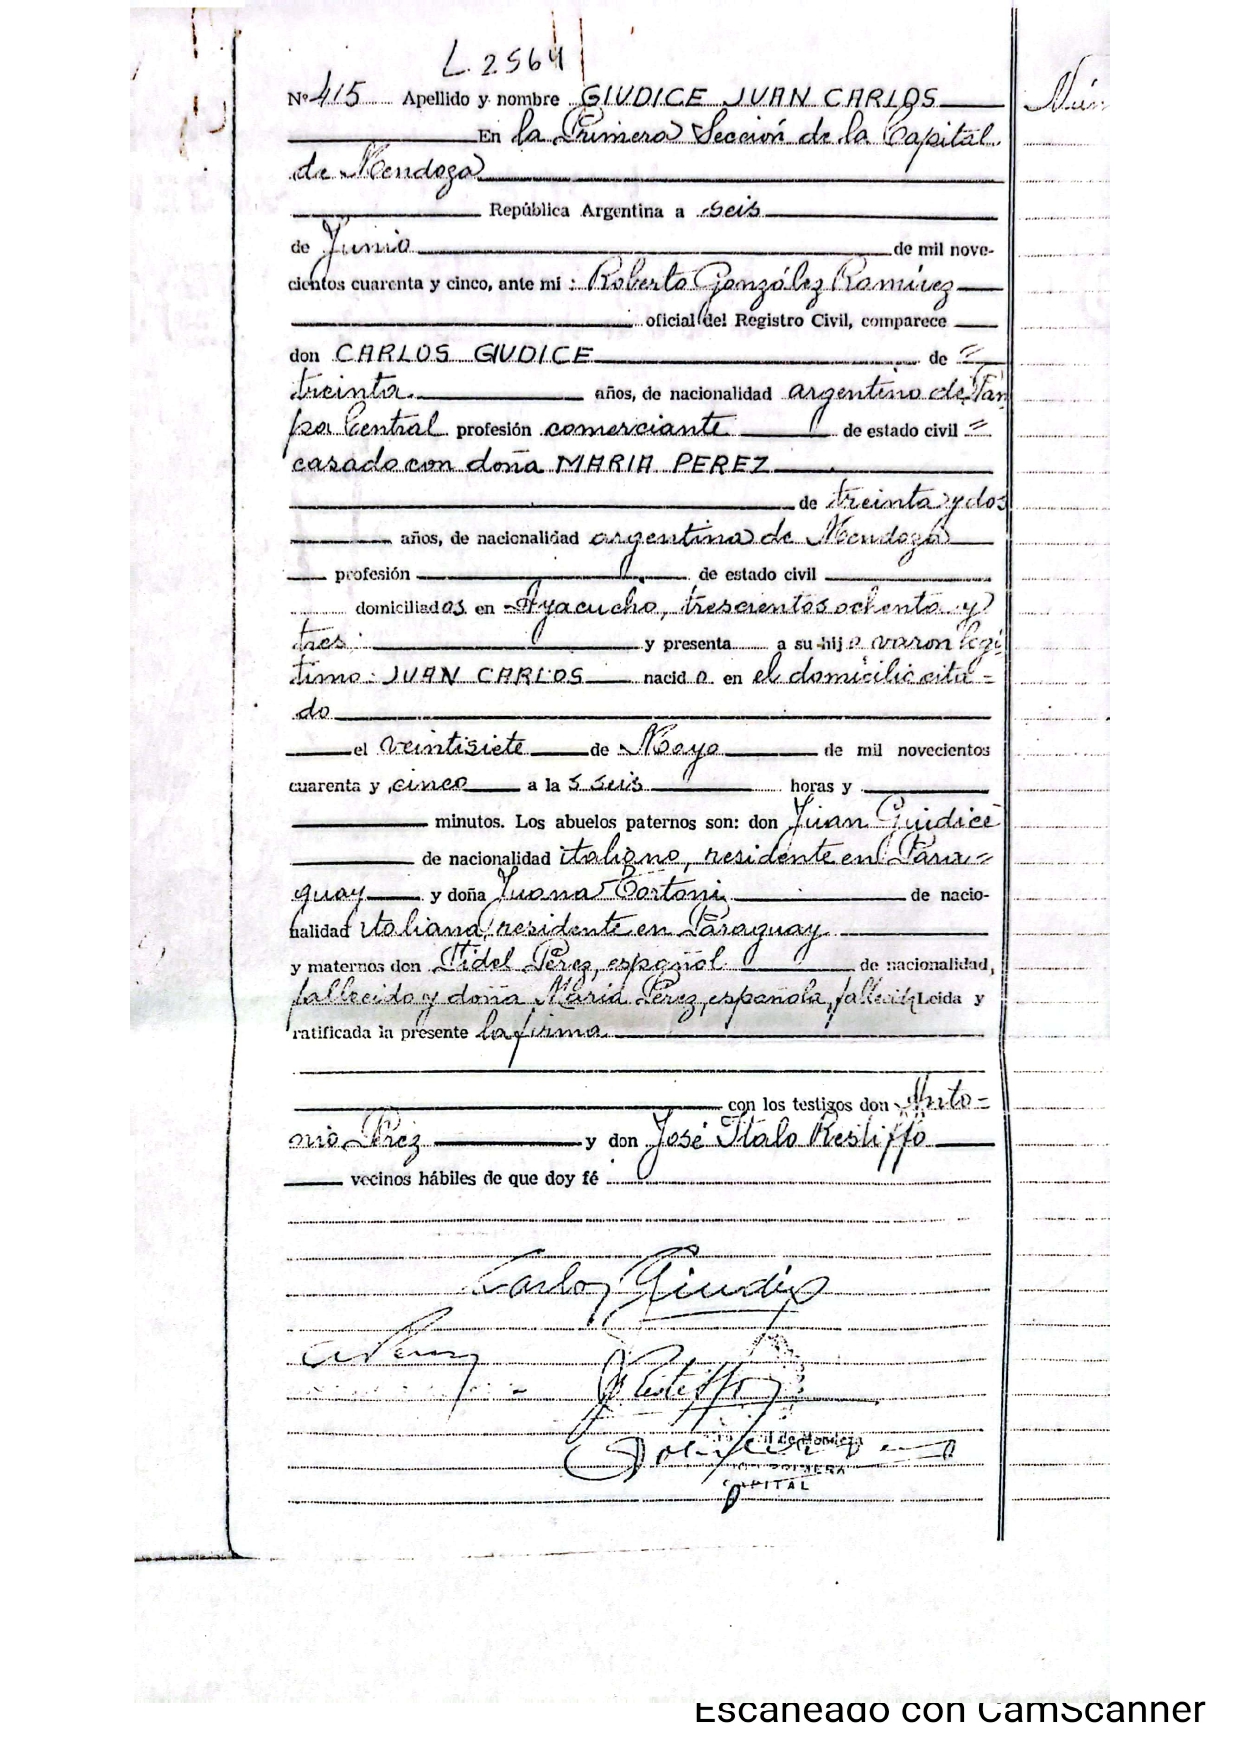 L. 2564
Nº 415 Apellido y nombre GIUDICE JUAN CARLOS Núm
En la Primera Sección de la Capital
de Mendoza
República Argentina a seis
de Junio de mil nove-
cientos cuarenta y cinco, ante mí : Roberto González Ramírez
oficial del Registro Civil, comparece
don CARLOS GIUDICE de =
treinta años, de nacionalidad argentino de Pam
pa Central profesión comerciante de estado civil =
casado con doña MARIA PEREZ
de treinta y dos
años, de nacionalidad argentina de Mendoza
profesión de estado civil
domiciliados en Ayacucho, trescientos ochenta y
tres y presenta a su hijo varon legí
timo: JUAN CARLOS nacido en el domicilio cita =
do
el veintisiete de Mayo de mil novecientos
cuarenta y cinco a las seis horas y
minutos. Los abuelos paternos son: don Juan Guidice
de nacionalidad italiano, residente en Para =
guay y doña Juana de nacio-
nalidad italiana, residente en Paraguay
y maternos don Fidel Pérez, español de nacionalidad,
fallecido y doña María Pérez, española, Leida y
ratificada la presente la firma
con los testigos don Anto =
nio Pérez y don José Italo Restiffo
vecinos hábiles de que doy fé
Carlos Giudice
Restiffo
Civil de Mendoza
PRIMERA
CAPITAL
Escaneado con CamScanner